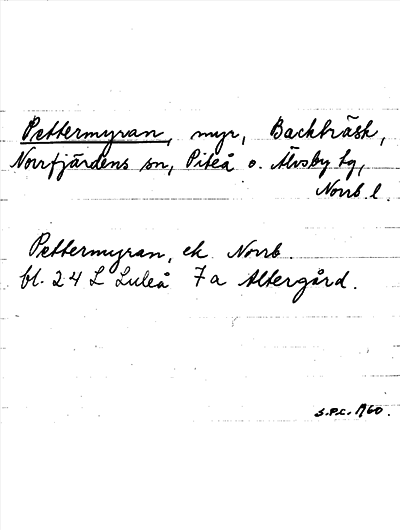 Pettermyran, myr, Backträsk,
Norrfjärdens sn, Piteå o. Älvsby tg,
Norrb. l.
Pettermyran, ek Norrb.
bl. 24 L Luleå 7a Altergård.
S.P.C. 1960.